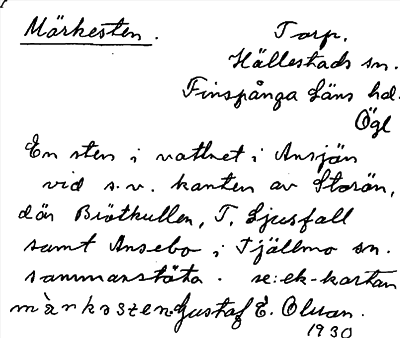 Märkesten. Torp.
Hällestads sn.
Finspånga Läns hd.
Ögl
En sten i vattnet i Ansjön
vid s.v. kanten av Storön,
där Brötkullen, T. Ljusfall
samt Ansebo i Tjällmo sn.
sammanstöta. se: ek-kartan
màrkəsten Gustaf E. Olsson.
1930